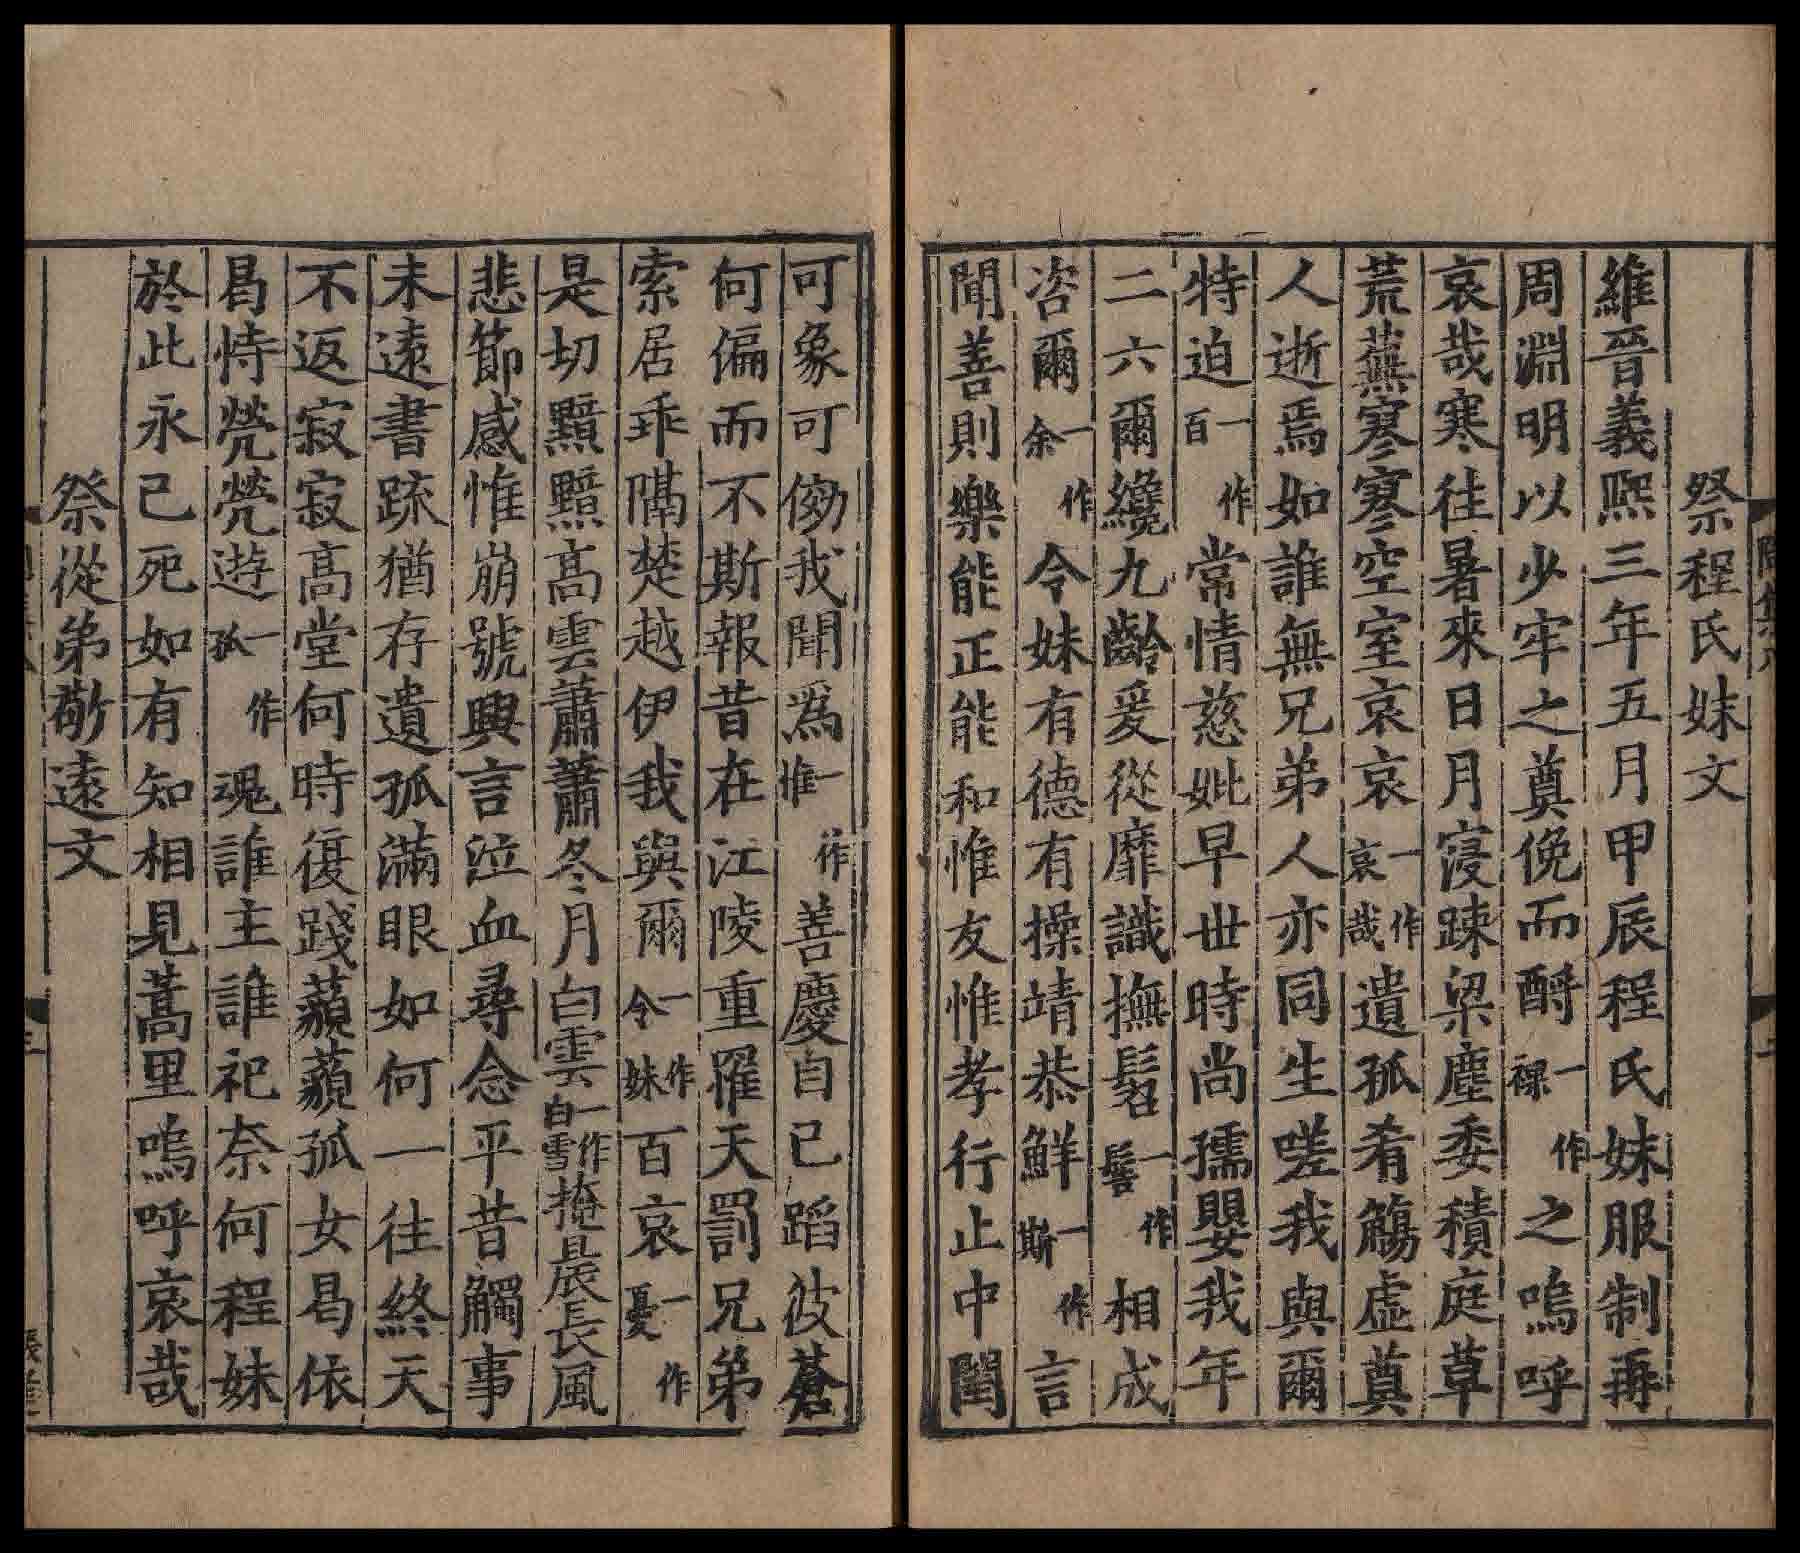 祭程氏妹文
維晉義熙三年五月甲辰程氏妹服制再
周淵明以少牢之奠俛而酹一作祼之嗚呼
哀哉寒往暑來日月寖踈梁塵委積庭草
荒蕪寥寥空室哀哀一作哀哉遺孤肴觴虛奠
人逝焉如誰無兄弟人亦同生嗟我與爾
特迫一作百常情慈妣早世時尚孺嬰我年
二六爾纔九齡爰從靡識撫髫一作髻相成
咨爾一作余令妹有德有操靖恭鮮一作斯言
聞善則樂能正能和惟友惟孝行止中閨
可象可傚我聞爲一作惟善慶自己蹈彼蒼
何偏而不斯報昔在江陵重罹天罰兄弟
索居乖隔楚越伊我與爾一作令妹百哀一作憂
是切黯黯高雲蕭蕭冬月白雲一作白雪掩晨長風
悲節感惟崩號興言泣血尋念平昔觸事
未遠書疏猶存遺孤滿眼如何一往終天
不返寂寂高堂何時復踐藐藐孤女曷依
曷恃煢煢遊一作孤魂誰主誰祀柰何程妹
於此永已死如有知相見蒿里嗚呼哀哉
祭從弟敬遠文